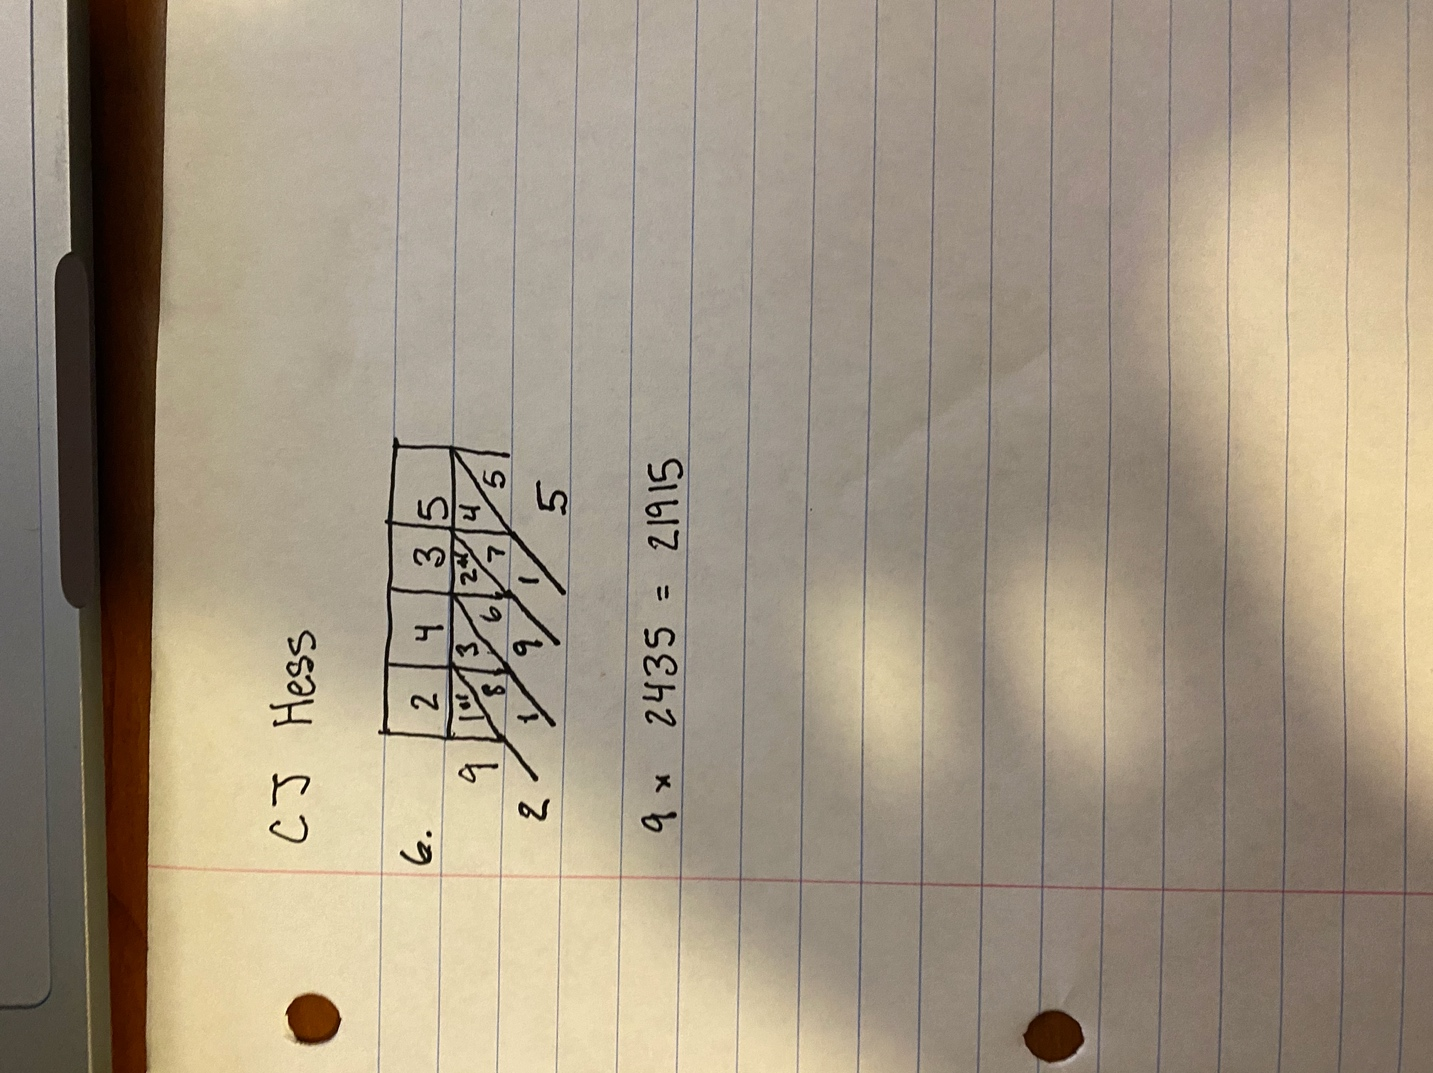 CJ Hess
6.
2 4 3 5
9 1 3 2 4
8 6 7 5
2 1 9 1 5
9 x 2435 = 21915